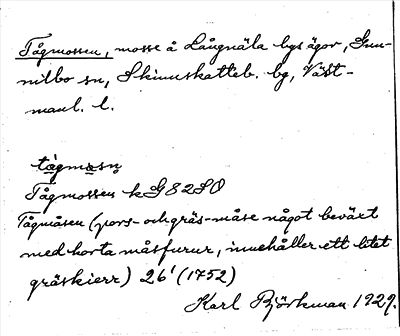 Tågmossen, mosse å Långnäla bys ägor, Gun-
nilbo sn, Skinnskatteb. bg, Väst-
manl. l.
tågmosn
Tågmossen k G82SO
Tågmåsen (pors- och gräs-måse något beväxt
med korta måsfurur, innehåller ett litet
gräskierr) 26' (1752)
Karl Björkman 1929.